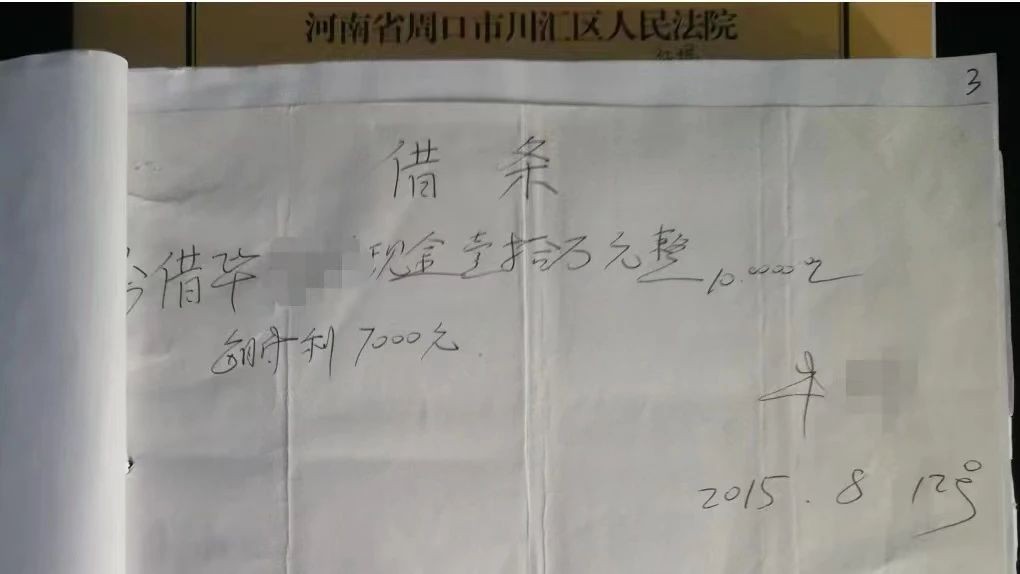 河南省周口市川汇区人民法院
3
借条
今借毕 现金壹拾万元整10.0000元
每月利7000元
牛
2015.8 12号